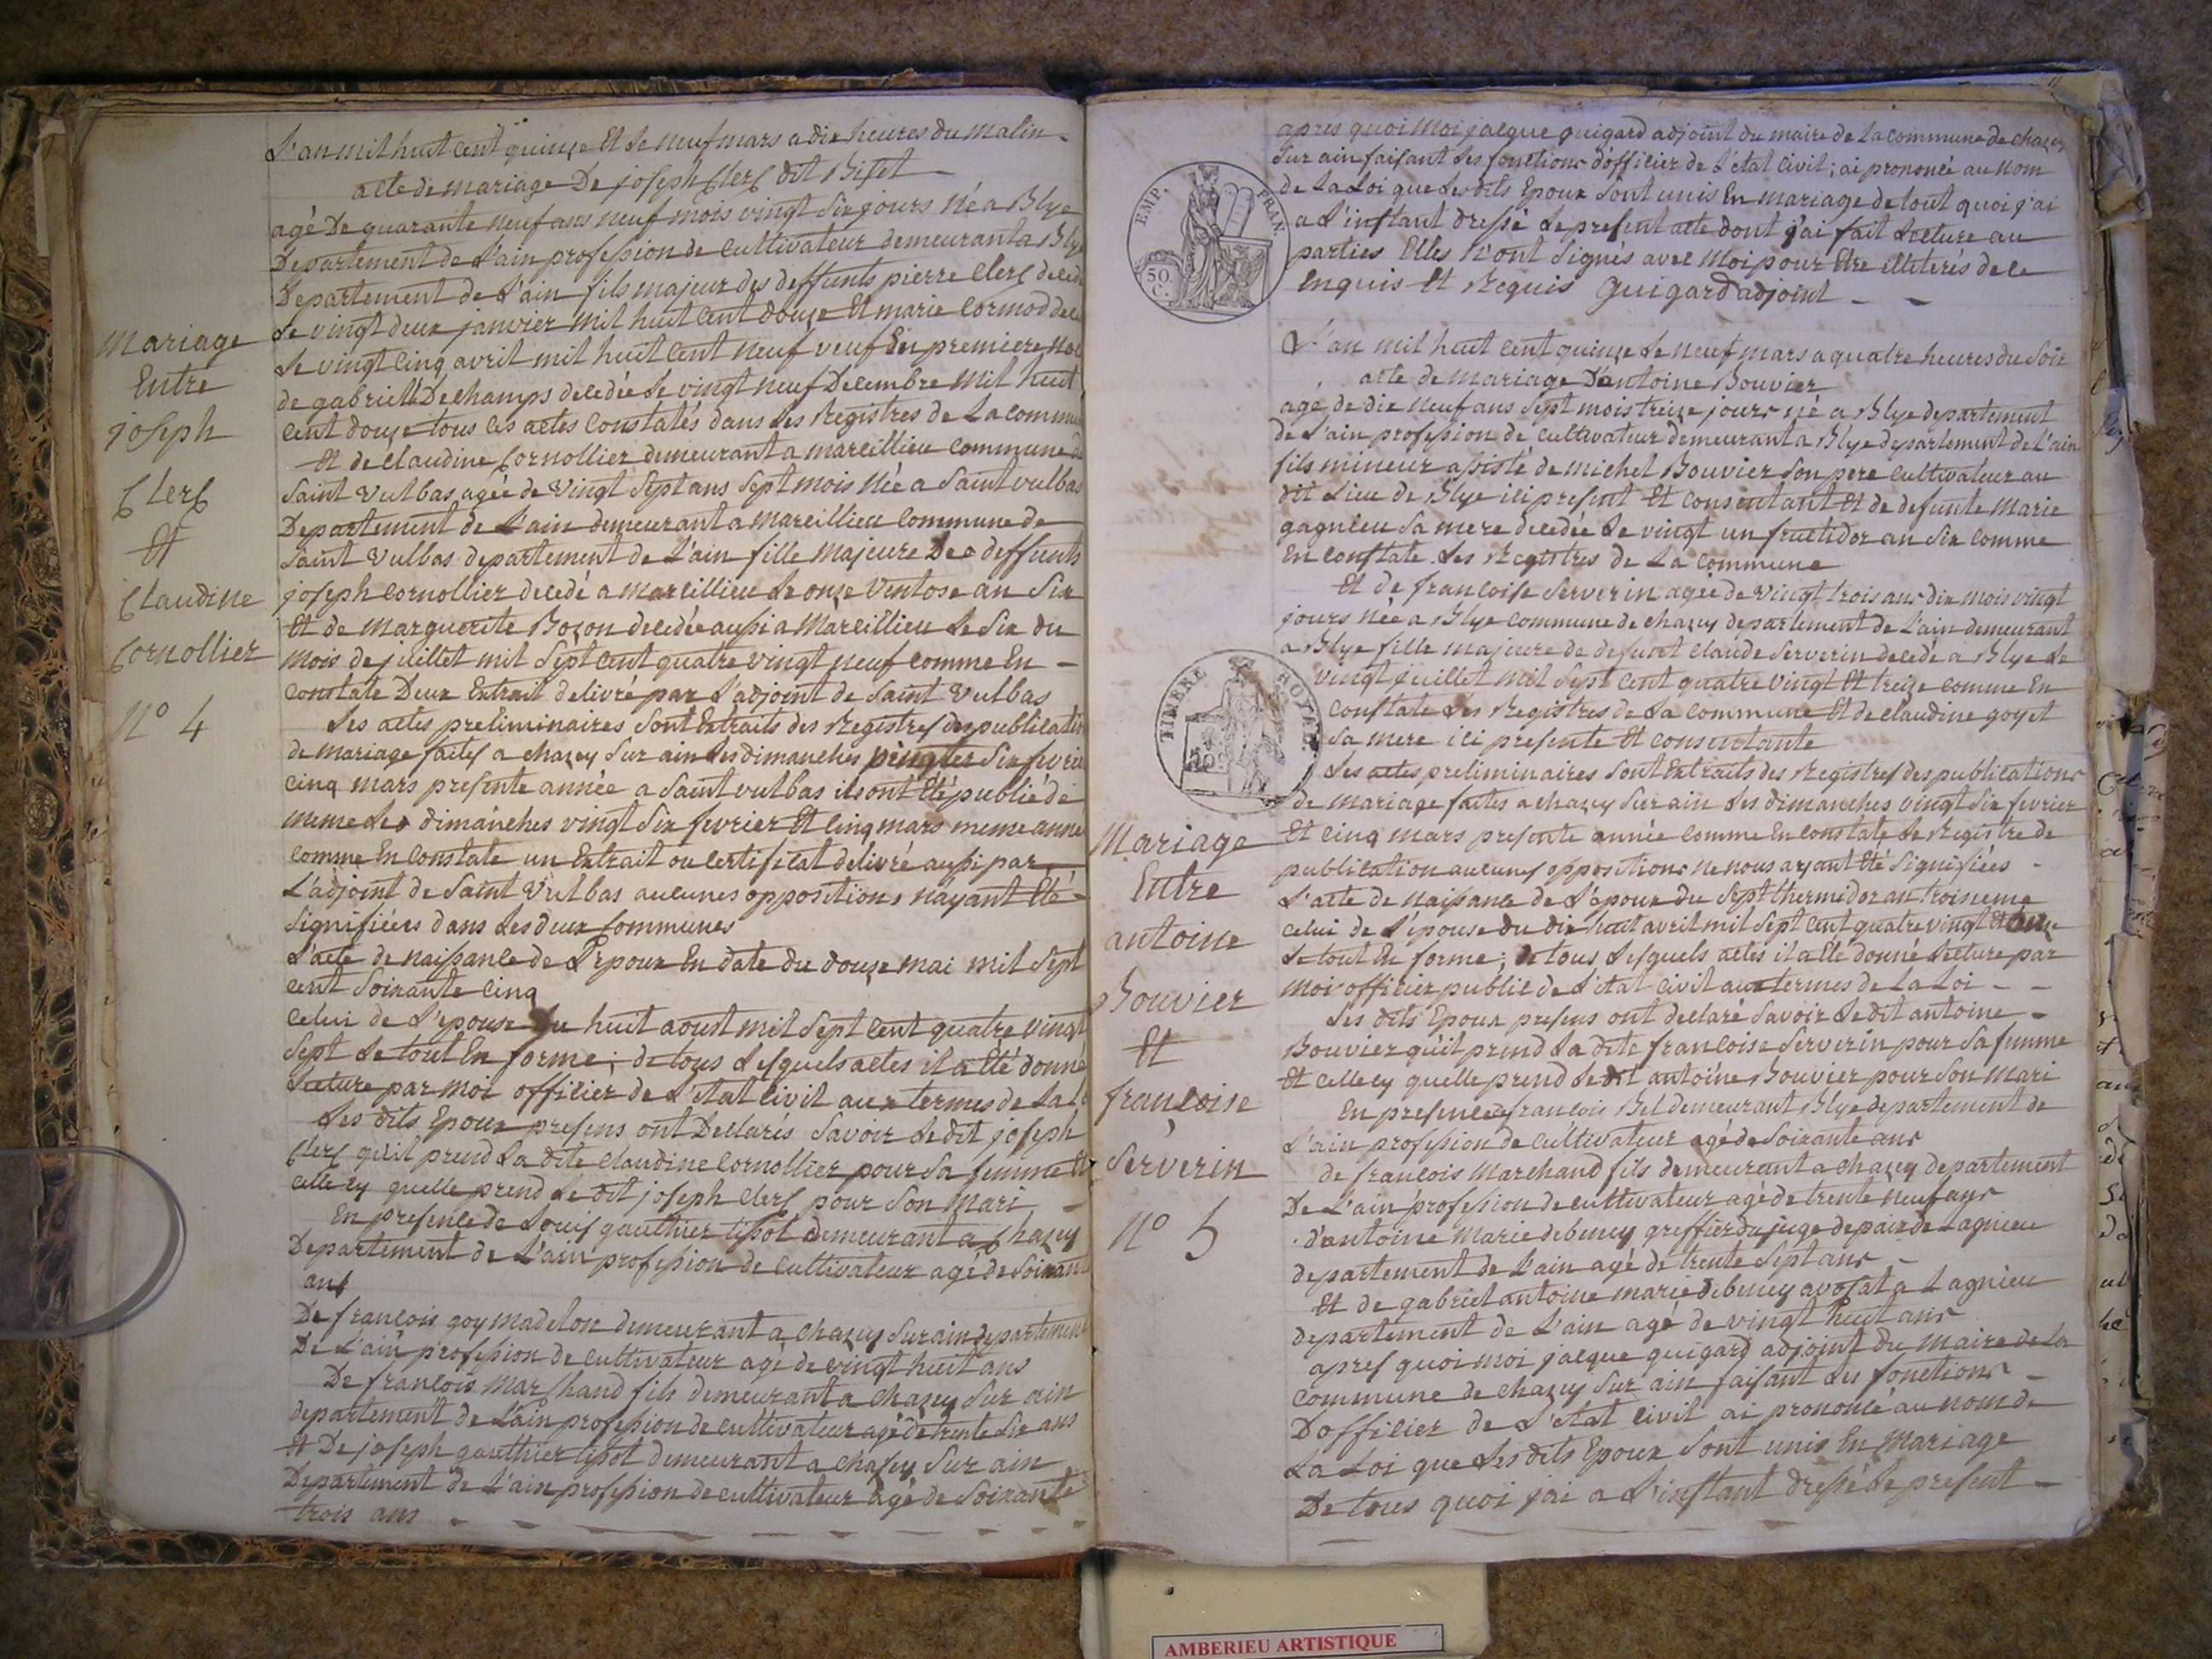 L'an mil huit cent quinze Et le neuf mars a dix heures du matin
acte de mariage De joseph Clerc dit Bifet
agé De quarante neuf ans neuf mois vingt six jours Né a Blye
Departement de L'ain profession de cultivateur demeurant a Blye
Departement de L'ain fils majeur des deffunts pierre Clerc decedé
Le vingt deux janvier mil huit cent douze Et marie Cormod
Le vingt cinq avril mil huit cent neuf veuf En premiere
de gabrielle Dechamps decedée Le vingt neuf Decembre mil huit
cent douze tous ces actes Constatés dans Les Registres de La commune
Et de Claudine Cornollier demeurant a marcillieu commune de
Saint Vulbas agée de Vingt Sept ans Sept mois Née a Saint vulbas
Departement de L'ain demeurant a marcillieu Commune de
Saint Vulbas departement de L'ain fille majeure Des deffunts
joseph Cornollier decedé a marcillieu Le onze Ventose an Six
Et de marguerite Bozon decedée aussi a Marcillieu Le Six du
mois de juillet mil Sept cent quatre vingt neuf comme En
constate Deux Extrait delivré par L'adjoint de Saint Vulbas
Les actes preliminaires sont Extraits des Registres des publications
de mariage faites a chazey Sur ain Les dimanches Six fevrier
cinq mars presente année a Saint vulbas ils ont Eté publié de
meme Les dimanches vingt Six fevrier Et Cinq mars meme année
comme En Constate un Extrait ou Certificat delivré aussi par
L'adjoint de Saint Vulbas aucunes oppositions nayant Eté
Signifiées dans Les deux Communes
L'acte de naissance de L'epoux En date du douze mai mil Sept
cent Soixante cinq
Celui de L'epouse du huit aoust mil Sept Cent quatre vingt
Sept Le tout En forme; de tous Lesquels actes il a Eté donné
Lecture par moi officier de L'etat Civil aux termes de La
Les dits Epoux presens ont Declarés Savoir Le dit joseph
Clerc qu'il prend La dite Claudine Cornollier pour Sa femme Et
celle cy quelle prend Le dit joseph Clerc pour Son Mari
En presence de Louis gauthier tissot demeurant a Chazey
Departement de L'ain profession de cultivateur agé de Soixante
ans
De francois goy madelon demeurant a chazey Sur ain departement
De L'ain profession de cultivateur agé de vingt huit ans
De francois Marchand fils demeurant a Chazey Sur ain
departement de L'ain profession de cultivateur agé de trente Six ans
Et De joseph gauthier tissot demeurant a chazey Sur ain
Departement de L'ain profession de cultivateur agé de Soixante
trois ans
Mariage
Entre
joseph
Clerc
Et
Claudine
Cornollier
N° 4
apres quoi Moi jacque guigard adjoint du maire de La commune de chazey
Sur ain faisant Les fonctions d'officier de L'etat Civil; ai prononcé au Nom
de La Loi que Les dits Epoux Sont unis En mariage de tout quoi j'ai
a L'instant dressé Le present acte dont j'ai fait Lecture au
parties Elles N'ont Signés avec Moi pour Etre illiterés de ce
Enquis Et Requis Guigard adjoint
EMP. FRAN.
50
C.
L'an mil huit cent quinze Le neuf mars a quatre heures du Soir
acte de mariage D'antoine Bouvier
agé de dix neuf ans Sept mois treize jours né a Blye departement
de L'ain profession de cultivateur demeurant a Blye departement de L'ain
fils mineur assisté de michel Bouvier Son pere cultivateur au
dit Lieu de Blye ici present Et Consentant Et de defunte Marie
gagnieu Sa mere decedée Le vingt un fructidor an Six Comme
En Constate Les Registres de La Commune
Et de francoise Serverin agée de Vingt trois ans dix mois vingt
jours née a Blye Commune de chazey departement de L'ain demeurant
a Blye fille majeure de defunt Claude Serverin decedé a Blye Le
vingt juillet mil Sept Cent quatre Vingt Et treize comme En
Constate Les Registres de La Commune Et de Claudine goyet
Sa mere ici presente Et Consentante
TIMBRE ROYAL
Les actes preliminaires sont Extraits des Registres des publications
de mariage faites a chazey Sur ain Les dimanches vingt Six fevrier
Et Cinq mars presente année Comme En Constate Le Registre de
publication aucunes oppositions ne nous ayant Eté Signifiées
L'acte de naissance de L'époux du Sept thermidor an troisieme
celui de L'épouse du dix huit avril mil Sept Cent quatre vingt Et onze
Le tout En forme; de tous Lesquels actes il a Eté donné Lecture par
Moi officier public de L'etat Civil aux termes de La Loi
Les dits Epoux presens ont declaré Savoir Le dit antoine
Bouvier qu'il prend La dite francoise Serverin pour Sa femme
Et celle cy quelle prend Le dit antoine Bouvier pour Son Mari
En presence de francois Bel demeurant Blye departement de
L'ain profession de cultivateur agé de Soixante ans
de francois Marchand fils demeurant a chazey departement
De L'ain profession de cultivateur agé de trente neuf ans
d'antoine Marie debeney greffier du juge de paix de Lagnieu
departement de L'ain agé de trente Sept ans
Et de gabriel antoine marie debeney avocat a Lagnieu
departement de L'ain agé de vingt huit ans
apres quoi moi jacque guigard adjoint du Maire de La
Commune de chazey Sur ain faisant Les fonctions
D'officier de L'etat Civil ai prononcé au nom de
La Loi que Les dits Epoux Sont unis En Mariage
De tous quoi jai a L'instant dressé Le present
Mariage
Entre
antoine
Bouvier
Et
francoise
Serverin
N° 5
AMBERIEU ARTISTIQUE